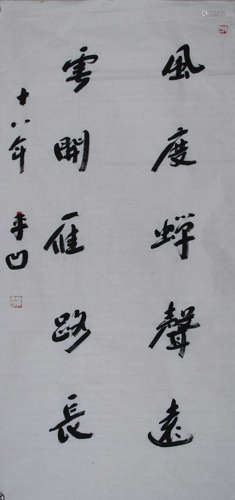 風度蝉聲遠
雲開雁路長
十八年
平凹